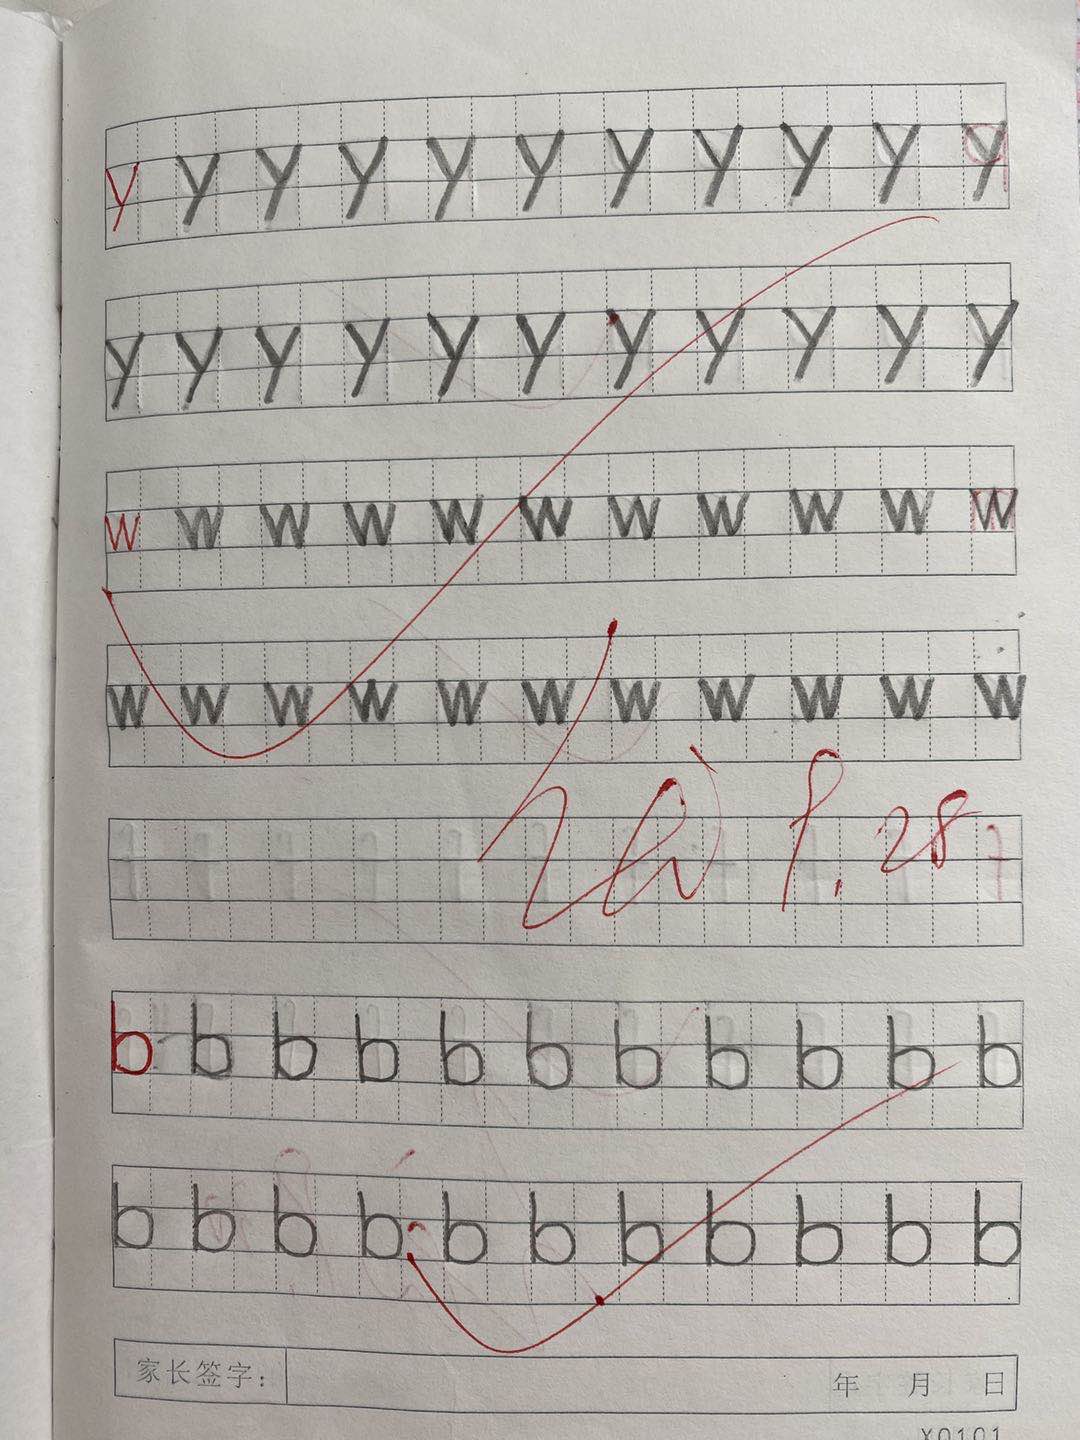 y y y y y y y y y y y
y y y y y y y y y y y
w w w w w w w w w w w
w w w w w w w w w w w
9.28
b b b b b b b b b b b
b b b b b b b b b b b
家长签字： 年 月 日
X0101